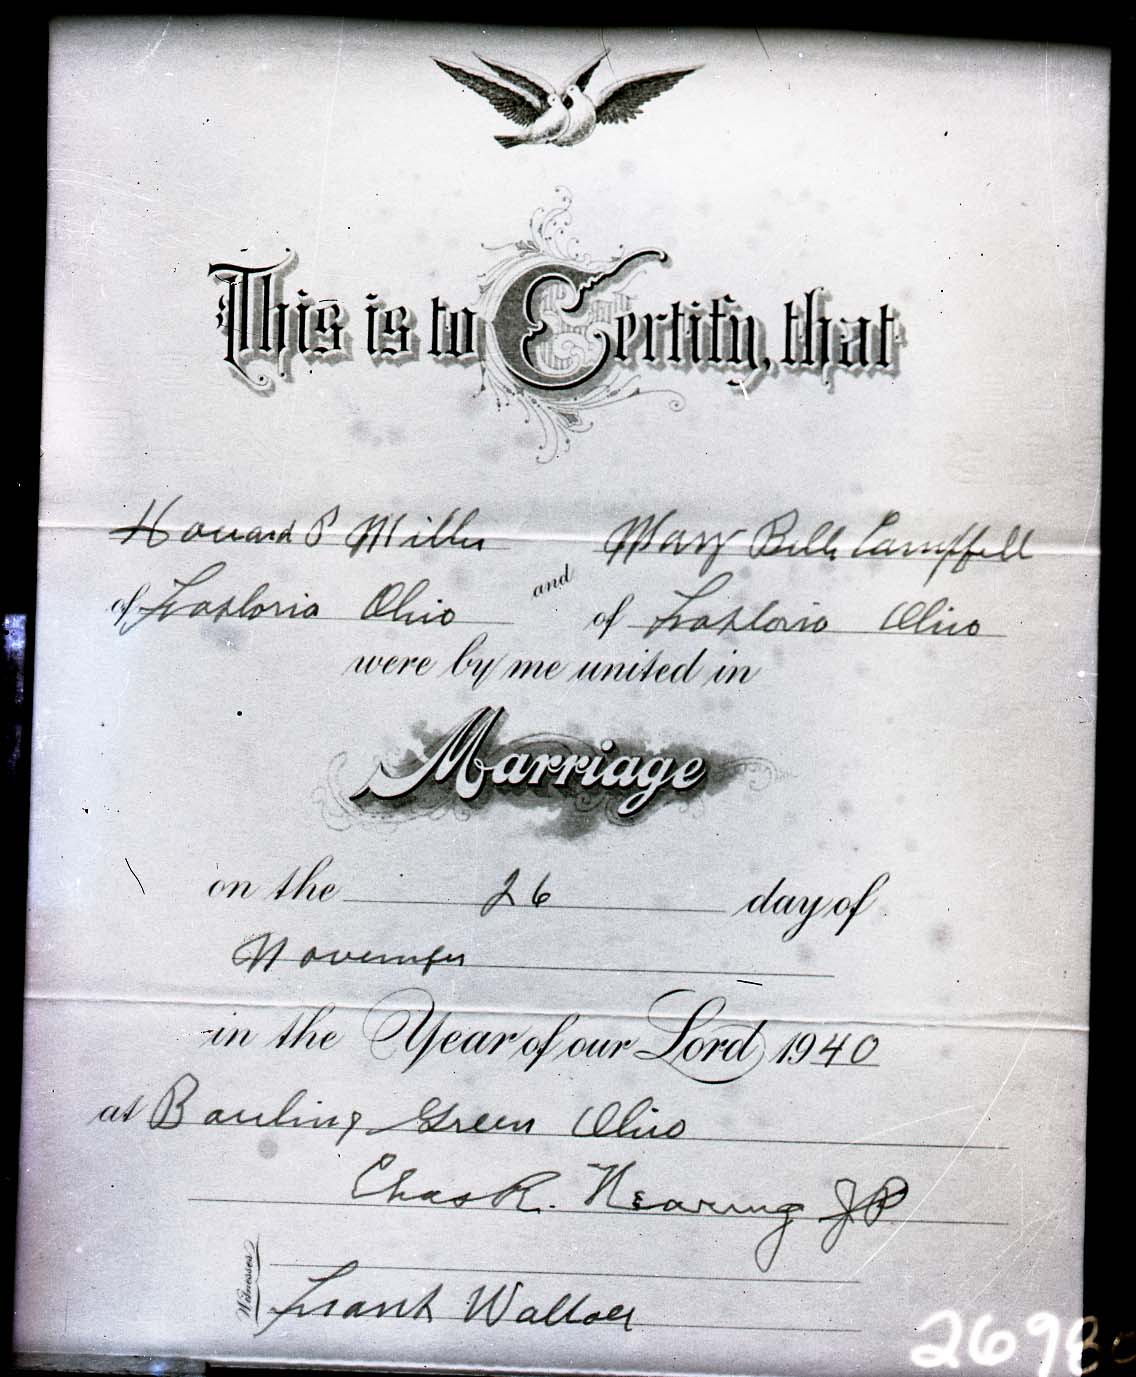 This is to Certify, that
Howard P Miller and Mary Belle Campbell
of Fostoria Ohio of Fostoria Ohio
were by me united in
Marriage
on the 26 day of
November
in the Year of our Lord 1940
at Bowling Green Ohio
Chas R. Nearing JP
Witnesses
Frank Wallace
2698